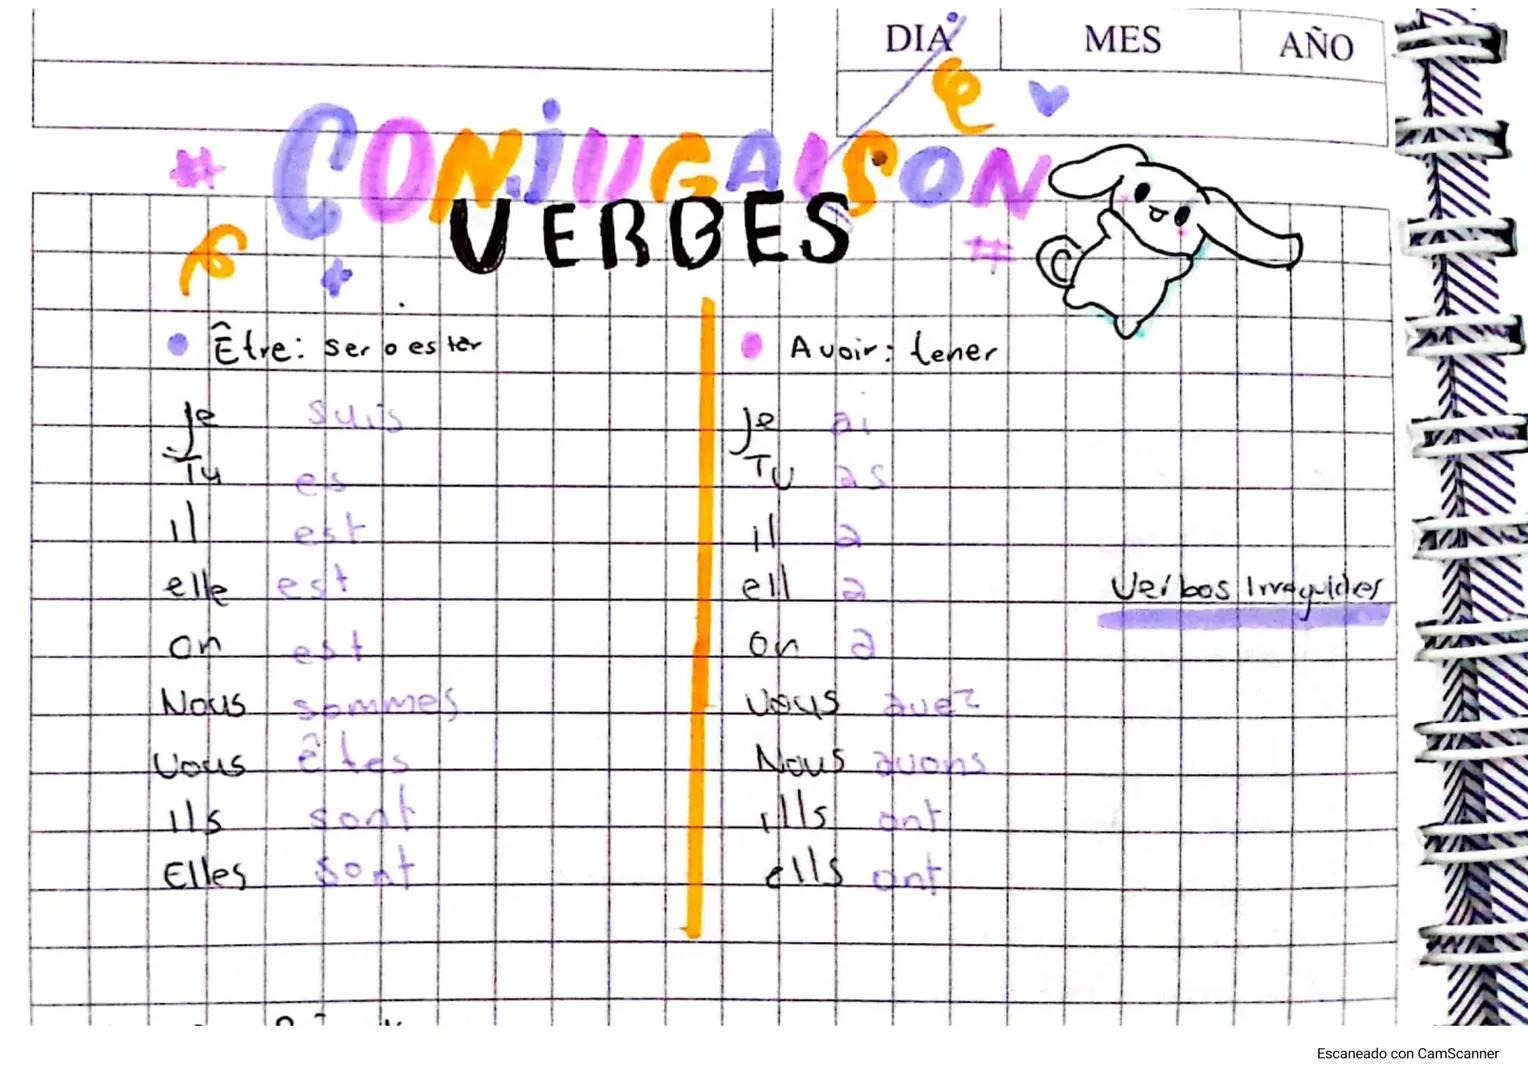 DIA MES AÑO
CONJUGAISON
VERBES
Être: ser o estar
je suis
Tu es
il est
elle est
on est
Nous sommes
Vous êtes
ils sont
Elles sont
Avoir: tener
je ai
Tu as
il a
ell a
on a
Vous avez
Nous avons
ills ont
ells ont
Verbos Irregulares
Escaneado con CamScanner